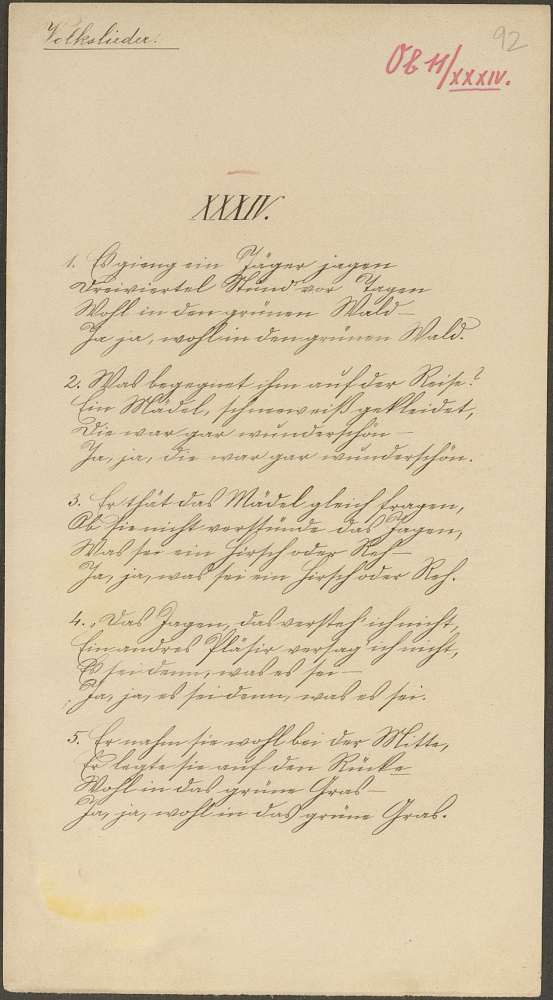 Volkslieder.
92
Ob 11/XXXIV.
XXXIV.
1. Es gieng ein Jäger jagen
Dreiviertel Stund vor Tagen
Wohl in den grünen Wald –
Ja ja, wohl in den grünen Wald.
2. Was begegnet ihm auf der Reise?
Ein Mädel, schneeweiß gekleidet,
Die war gar wunderschön –
Ja, ja, die war gar wunderschön.
3. Er thät das Mädel gleich fragen,
Ob sie nicht verstünde das Jagen,
Was sei ein Hirsch oder Reh –
Ja, ja, was sei ein Hirsch oder Reh.
4. „Das Jagen, das versteh' ich nicht,
Ein andres Pläsir versag' ich nicht,
Es sei denn, was es sei –
Ja, ja, es sei denn, was es sei.
5. Er nahm sie wohl bei der Mitte,
Er legte sie auf den Rücke
Wohl in das grüne Gras –
Ja, ja, wohl in das grüne Gras.